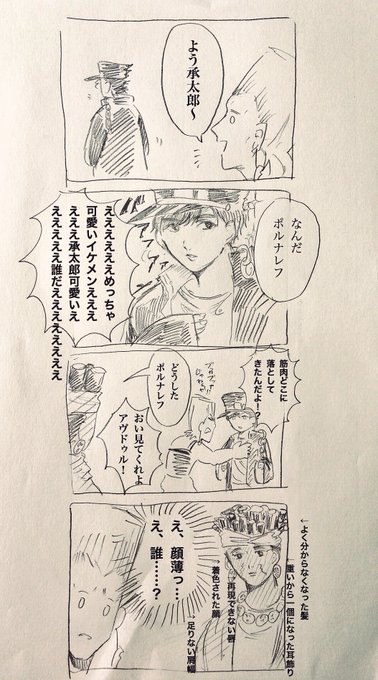 よう承太郎～
なんだ
ポルナレフ
ええええええめっちゃ
可愛いイケメンえええ
えええ承太郎可愛いえ
えええええ誰だえええええええ
筋肉どこに
落として
きたんだよ！
どうした
ポルナレフ
おい見てくれよ
アヴドゥル！
←よく分からなくなった髪
←重いから一個になった耳飾り
→再現できない唇
→着色された顔
→足りない肩幅
え、顔薄っ…．
え、誰……？